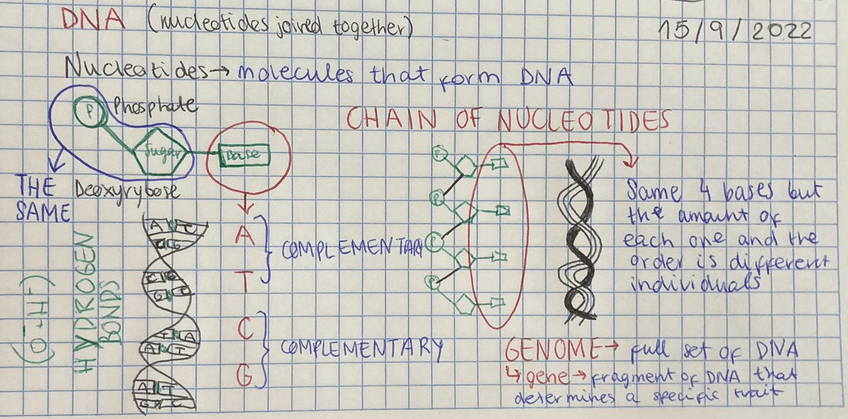 DNA (nucleotides joined together)
15/9/2022
Nucleotides → molecules that form DNA
P Phosphate
Sugar
Base
Deoxyrybose
THE
SAME
CHAIN OF NUCLEOTIDES
P
P
P
P
Same 4 bases but
the amount of
each one and the
order is different
individuals
A
T
COMPLEMENTARY
C
G
COMPLEMENTARY
HYDROGEN
BONDS
GENOME → full set of DNA
↳ gene → fragment of DNA that
determines a specific trait